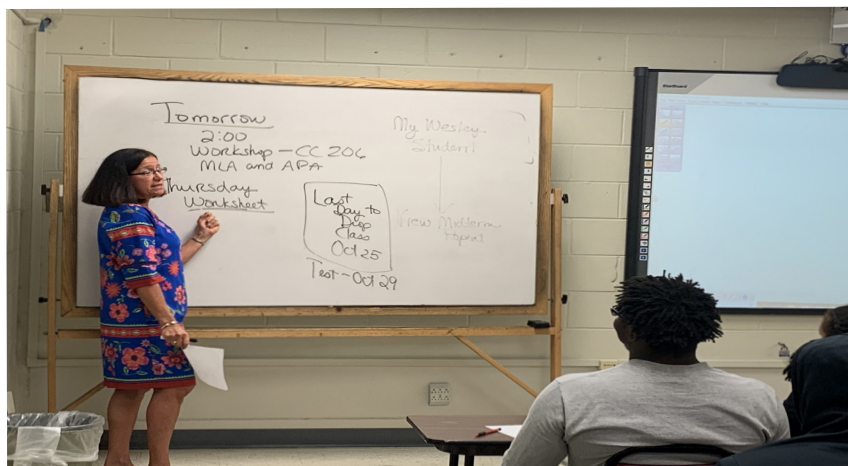 Tomorrow
2:00
Workshop - CC 206
MLA and APA
Thursday
Worksheet
Last
Day to
Drop
Class
Oct 25
Test - Oct 29
My Wesley
Student
View Midterm
StarBoard